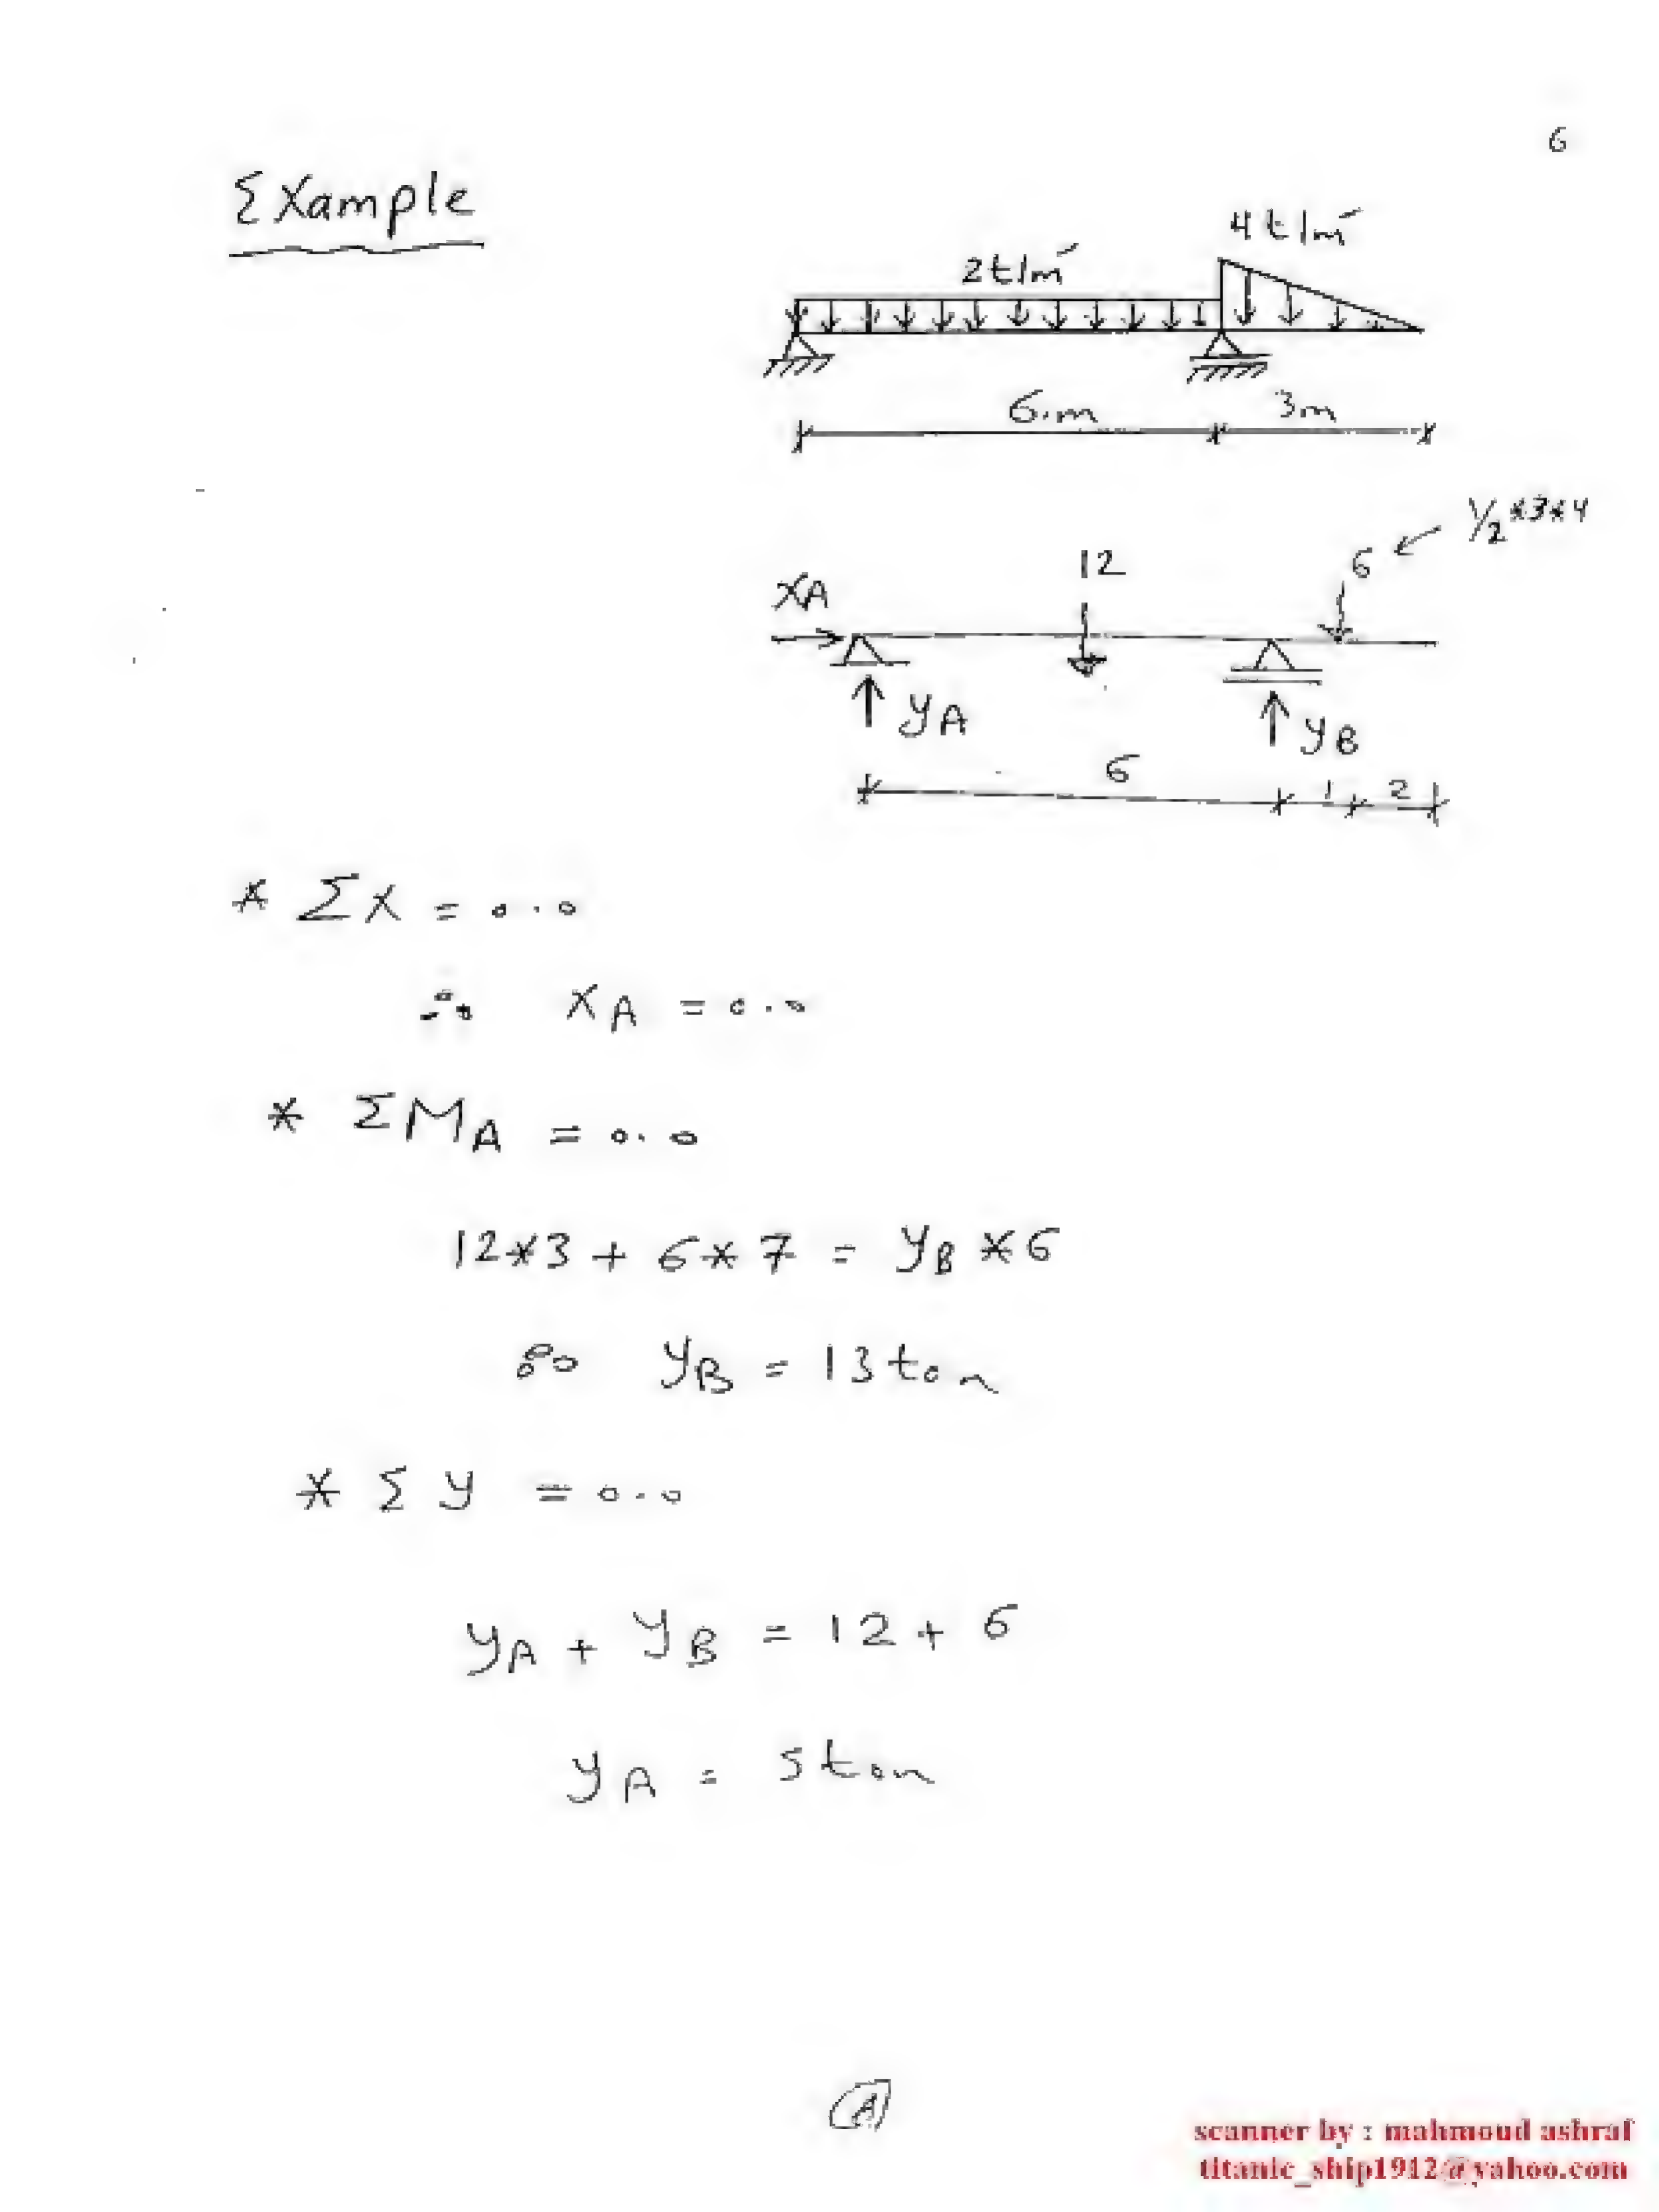 6
Example
4t/m'
2t/m'
6.m 3m
1/2*3*4
12 6
XA
yA yB
6 1 2
* ΣX = 0.0
∴ XA = 0.0
* ΣMA = 0.0
12*3 + 6*7 = yB *6
∴ yB = 13 ton
* Σy = 0.0
yA + yB = 12 + 6
yA = 5 ton
A
scanner by : mahmoud ashraf
titanic_ship1912@yahoo.com